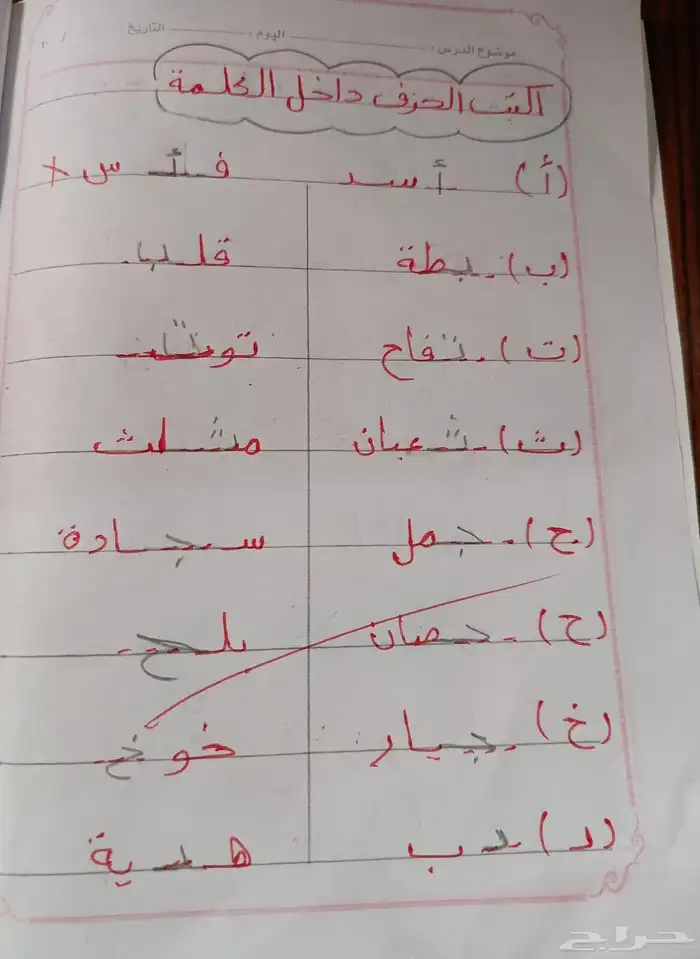 موضوع الدرس : اليوم : التاريخ : / /
اكتب الحرف داخل الكلمة
(أ) أسد فأس
(ب) بطة قلب
(ت) تفاح توت
(ث) ثعبان مثلث
(ج) جمل سجادة
(ح) حصان بلح
(خ) جيار خوخ
(د) دب هدية
حراج